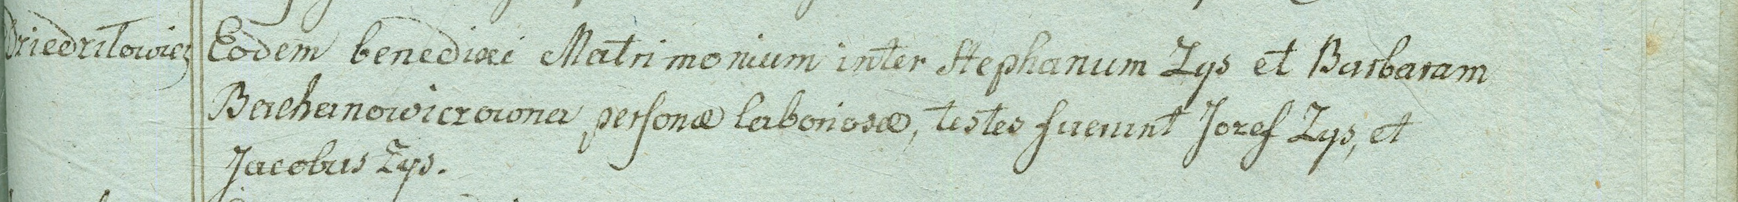 Dziedziłowicz
Eodem benedixi Matrimonium inter Stephanum Zys et Barbaram
Bachanowiczowna personæ laboriosæ, testes fuerunt Jozef Zys, et
Jacobus Zys.